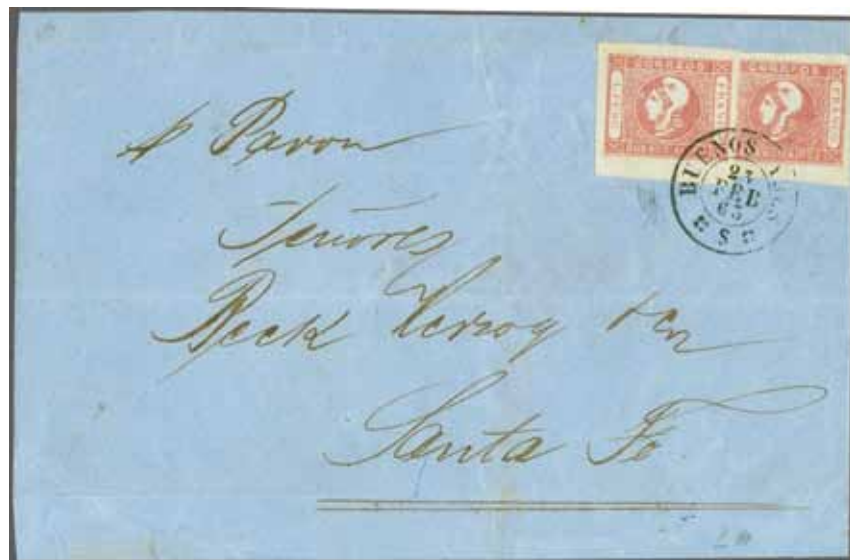 CORREOS CORREOS
BUENOS
FEB
S
p Pavon
Señores
Beck Herzog & Ca
Santa Fe